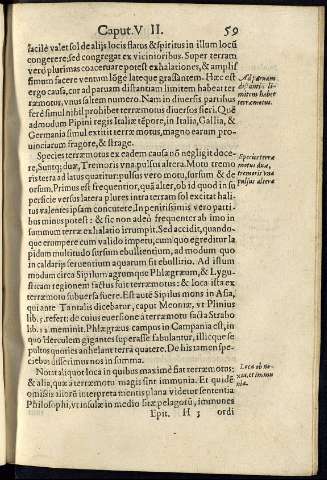 Caput. V II. 59
facilè valet sol de alijs locis flatus & spiritus in illam locũ
congerere, sed congregat ex vicinioribus. Super terram
verò plurimas coaceruare potest exhalationes, & amplis
simum facere ventum lõgè lateque grassantem. Hæc est
ergo causa, cur ad paruam distantiam limitem habeat ter
ræmotus, vnus saltem numero. Nam in diuersis partibus
ferè simul nihil prohibet terræmotus diuersos fieri. Què
admodum Pipini regis Italiæ tẽpore, in Italia, Gallia, &
Germania simul extitit terræmotus, magno earum pro-
uinciarum fragore, & strage.
Ad paruam
distantiã li-
mitem habet
terræmotus.
Species terræmotus ex eadem causa nõ negligit doce-
re, Sunt duæ, Tremor is vna pulsus altera. Motu tremo
ris terra ad latus quatitur: pulsus vero motu, sursum & de
orsum. Primus est frequentior, quã alter, ob id quod in su
perficie versus latera plures intra terram sol excitat hali-
tus valentes ipsam concutere. In penitissimis vero parti-
bus minus potest: & sic non adeò frequenter ab imo in
summum terræ exhalatio irrumpit. Sed accidit, quando-
que erumpere cum valido impetu, cum quo egreditur la
pidum multitudo sursum ebullientium, ad modum quo
in caldarijs seruentium aquarum fit ebullitio. Ad istum
modum circa Sipilum agrumque Phlægræum, & Lygu-
sticam regionem factus fuit terræmotus: & loca ista ex
terræmotu subuersa fuere. Est autẽ Sipilus mons in Asia,
qui ante Tantalis dicebatur, caput Meoniæ, vt Plinius
lib. 5. refert: de cuius euersione à terræmotu facta Strabo
lib. 12. meminit. Phlægræus campus in Campania est, in
quo Herculem gigantes superasse fabulantur, illicque se
pultos quoties anhelant terrã quatere. De his tamen spe-
ciebus disserimus nos in summa.
Species terræ
motus duæ,
tremoris vna
pulsus altera
Notat aliquot loca in quibus maximè fiat terræmotus;
& alia, quæ à terræmotu magis sint immunia. Et quidẽ
omissis aliorũ interpretamentis plana videtur sententia
Philosophi, vt insulæ in medio sitæ pelagosũ, immunes
Epit. H 3 ordi